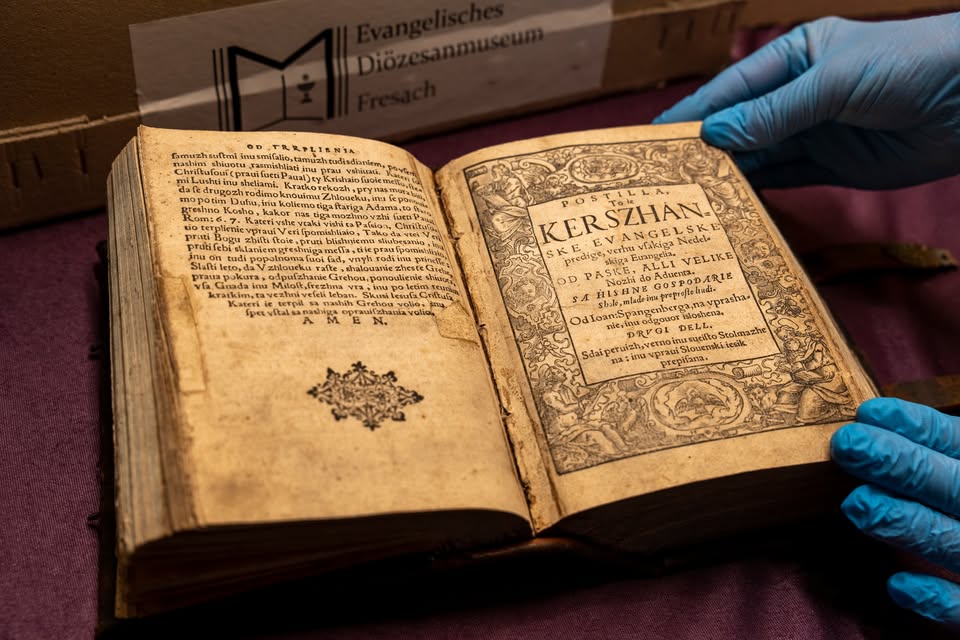 Evangelisches
Diözesanmuseum
Fresach
OD TERPLENIA
ſamuzh ſustmi inu smiſalio, tamuzh tudi sdianiem,
naſhim shiuotu, rasmiſhlati inu prau vshiuati.
Chriſtuſoui (praui ſueti Paual) ty Krishaio ſuoie meſſo,
mi Luſhti inu sheliami. Kratko rekozh, pry nas mora
da ſe drugozh rodimo knouimu Zhloueku, inu ſe
mo po tim Duhu, inu koliemo tiga ſtariga Adama, to
greſhno Kosho, kakor nas tiga moshno vzhi ſueti
Rom: 6. 7. Kateri vſhe vtaki viſhi ta Paſsion,
tio terplenie vpraui Veri ſpomiſhliaio,
pruti Bogu zhiſti ſtoie, pruti bliſhniemu
pruti ſebi
inu on tudi popolnoma ſuoi ſad, vnyh rodi inu
Slaſti leto, da V Zhloueku raſte, shalouanie zhes te Grehe
praua pokura, odpuſzhanie Grehou, ponoulienie
vſa Gnada inu Miloſt, ſrezhna vra, inu po letim
kratkim, ta vezhni veſeli leban. Skusi Ieſuſa Criſtuſa
Kateri ie terpil sa naſhih Grehou volio, inu
ſpet vſtal sa naſhiga oprauiſzhania volio,
AMEN.
POSTILLA,
To ie
KERSZHAN-
SKE EVANGELSKE
predige, verhu vſakiga Nedel-
skiga Euangelia,
OD PASKE, ALLI VELIKE
Nozhi do Aduenta.
SA HISHNE GOSPODARIE
Shole, mlade inu preproſte ludi.
Od Ioan: Spangenberga na vpraſha-
nie, inu odgouor isloshena.
DRVGI DELL.
Sdai peruizh, verno inu sueiſto Stolmazhe
na: inu vpraui Slouenski iesik
prepiſana.